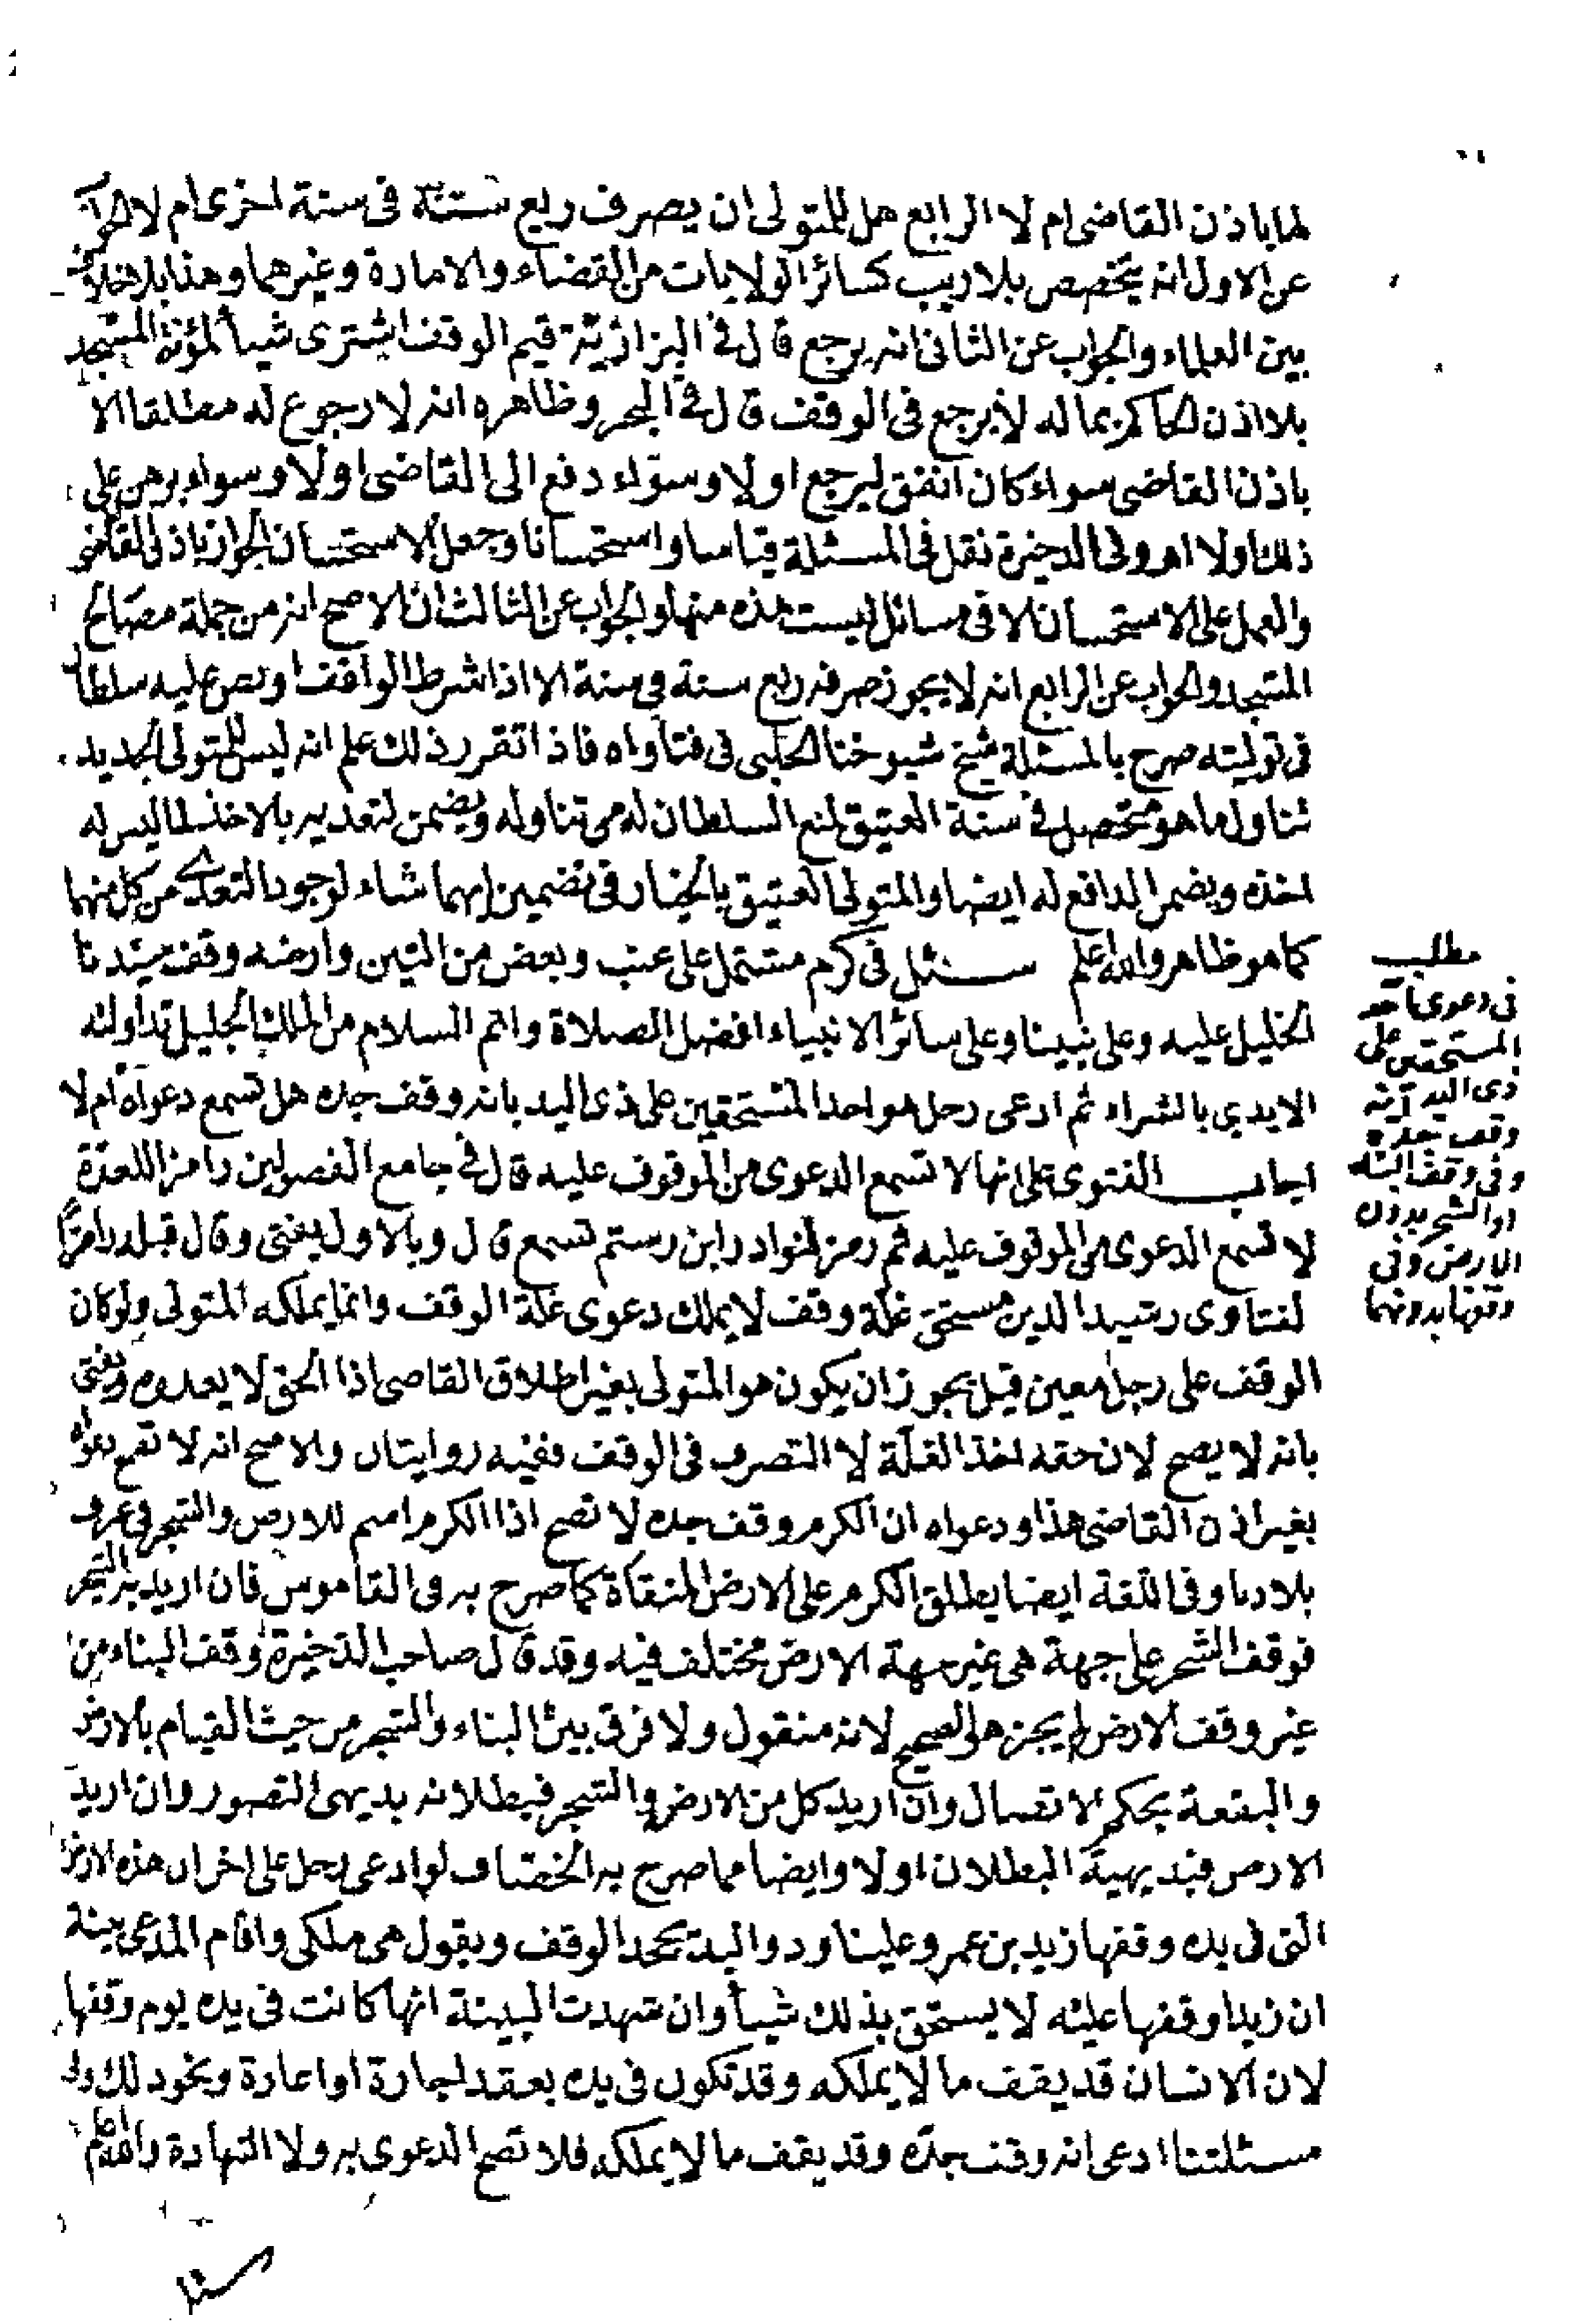 لها باذن القاضى ام لا الرابع هل للمتولى ان يصرف ريع سنة فى سنة اخرى ام لا الجواب
عن الاول انه يتخصص بلا ريب كسائر الولايات من القضاء والامارة وغيرهما وهذا بلا خلاف
بين العلماء والجواب عن الثانى انه يرجع قال فى البزازية قيم الوقف اشترى شيأ لمؤنة المسجد
بلا اذن الحاكم بماله لا يرجع فى الوقف قال فى البحر وظاهره انه لا رجوع له مطلقا الا
باذن القاضى سواء كان انفق ليرجع اولا وسواء دفع الى القاضى اولا وسواء برهن على
ذلك اولا اهـ وفى الدخيرة نقل فى المسئلة قياسا واستحسانا وجعل الاستحسان الجواز باذن القاضى
والعمل على الاستحسان الا فى مسائل ليست هذه منها والجواب عن الثالث ان الاصح انه من جملة مصالح
المسجد والجواب عن الرابع انه لا يجوز صرف ريع سنة فى سنة الا اذا شرط الواقف او نص عليه سلطان
فى توليته صرح بالمسئلة شيخ شيوخنا الحلبى فى فتاواه فاذا تقرر ذلك علم انه ليس للمتولى الجديد
تناول ما هو متحصل فى سنة العتيق لمنع السلطان له من تناوله ويضمن لتعديه بالاخذ لما ليس له
اخذه ويضمن الدافع له ايضا والمتولى العتيق بالخيار فى تضمين ايهما شاء لوجود التعدى من كل منهما
كما هو ظاهر والله اعلم سئل فى كرم مشتمل على عنب وبعض من التين وارضه وقف سيدنا
الخليل عليه وعلى نبينا وعلى سائر الانبياء افضل الصلاة واتم السلام من الملك الجليل تداولته
الايدي بالشراء ثم ادعى رجل هو احد المستحقين على ذى اليد بانه وقف جده هل تسمع دعواه ام لا
اجاب الفتوى على انها لا تسمع الدعوى من الموقوف عليه قال فى جامع الفصولين رامزا للعدة
لا تسمع الدعوى من الموقوف عليه ثم رمز لنوادر ابن رستم تسمع قال وبالاول يفتى وقال قبله رامزا
لفتاوى رشيد الدين مستحق غلة وقف لا يملك دعوى غلة الوقف وانما يملكه المتولى ولو كان
الوقف على رجل معين قيل يجوز ان يكون هو المتولى بغير اطلاق القاضى اذ الحق لا يعدوه ويفتى
بانه لا يصح لان حقه اخذ الغلة لا التصرف فى الوقف ففيه روايتان والاصح انه لا تصح دعواه
بغير اذن القاضى هذا ودعواه ان الكرم وقف جده لا تصح اذ الكرم اسم للارض والشجر فى عرف
بلادنا وفى اللغة ايضا يطلق الكرم على الارض المنقاة كما صرح به فى القاموس فان اريد به الشجر
فوقف الشجر على جهة هى غير جهة الارض مختلف فيه وقد قال صاحب الذخيرة وقف البناء من
غير وقف الارض لم يجز هو الصحيح لانه منقول ولا فرق بين البناء والشجر من حيث القيام بالارض
والبقعة بحكم الاتصال وان اريد كل من الارض والشجر فبطلانه بديهى التصور وان اريد
الارض فبديهية البطلان اولا وايضا مما صرح به الخصاف لو ادعى رجل على اخر ان هذه الارض
التى فى يده وقفها زيد بن عمرو علينا وذو اليد يجحد الوقف ويقول هى ملكى واقام المدعى بينة
ان زيدا وقفها عليه لا يستحق بذلك شيأ وان شهدت البينة انها كانت فى يده يوم وقفها
لان الانسان قد يقف ما لا يملكه وقد تكون فى يده بعقد اجارة او اعارة ونحو ذلك وفى
مسئلتنا ادعى انه وقف جده وقد يقف ما لا يملكه فلا تصح الدعوى به ولا الشهادة والله اعلم
سئل
مطلب
فى دعوى احد
المستحقين على
ذى اليد انه
وقف جده
وفى وقف البناء
او الشجر بدون
الارض وفى
وقفها بدونهما